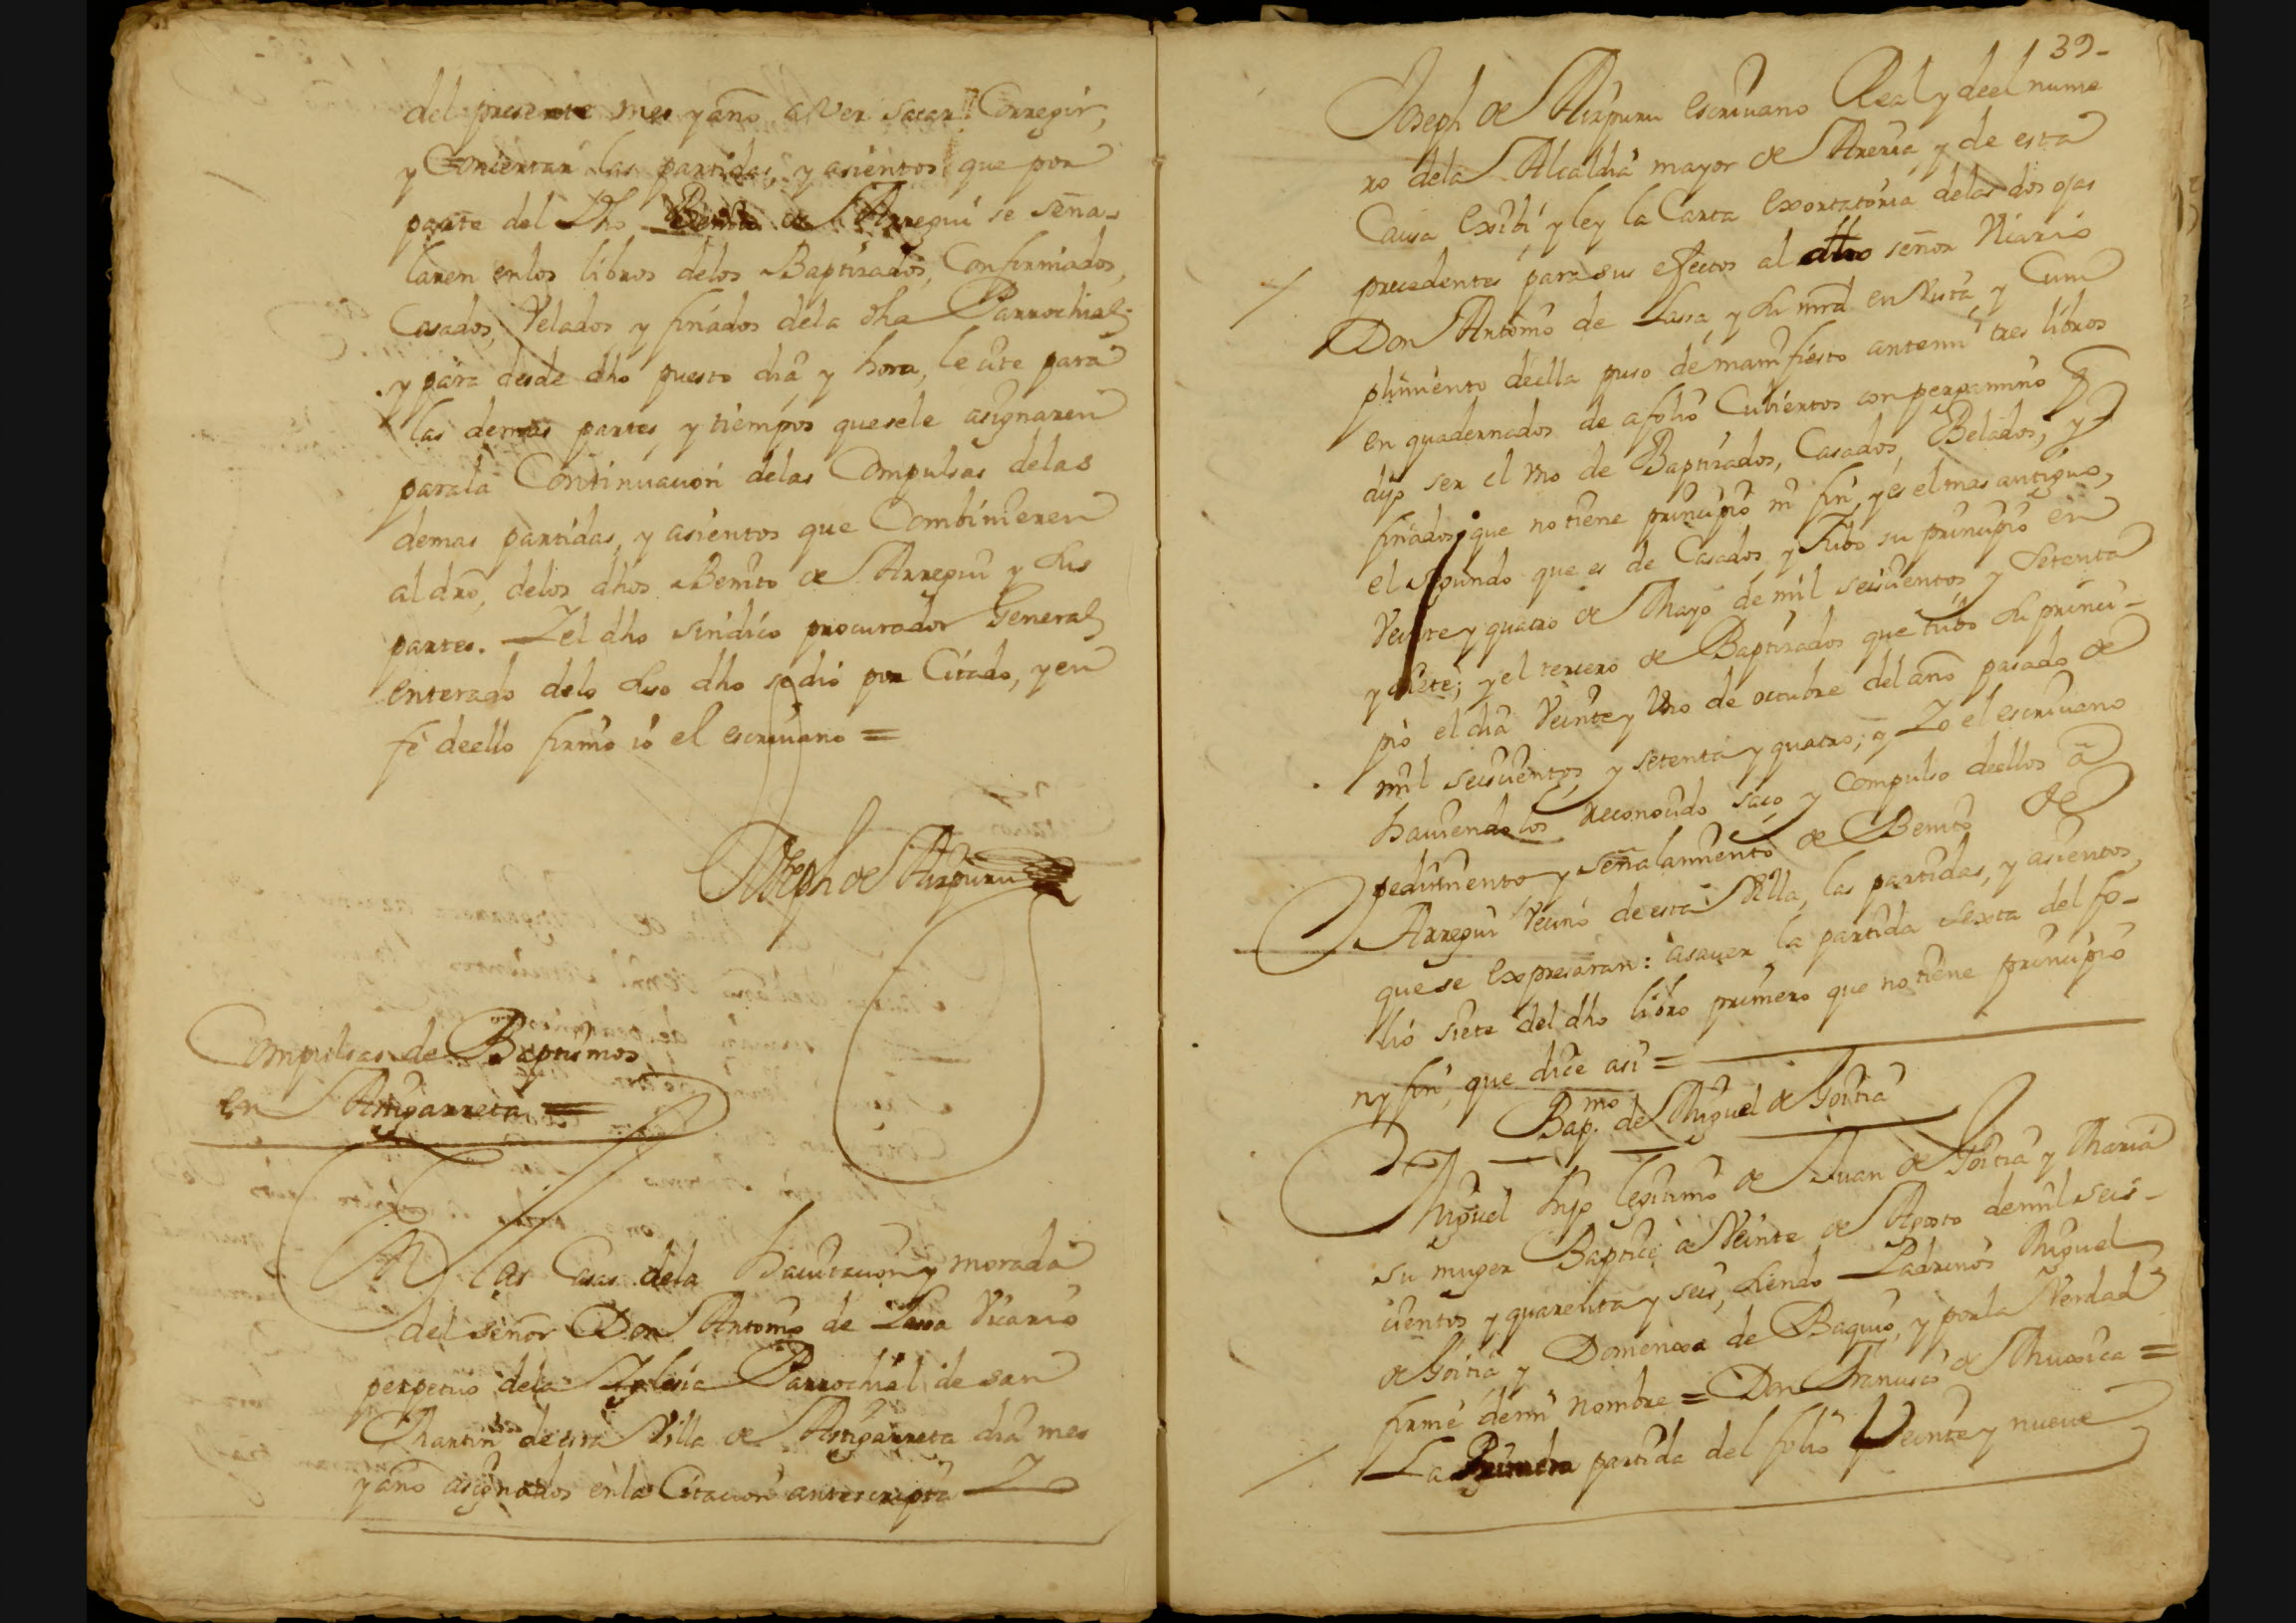 del presente mes y año, a Ver Sacar, Corregir,
y Conzertar las partidas, y asientos que por
parte del Dho Benito de Arregui se seña-
laren en los libros delos Baptizados, Confirmados,
Casados, Velados, y finados dela dha Parrochial;
y para desde dho puesto dia y hora, le cite para
las demas partes y tiempos quesele asignaren
parala Continuacion delas Compulsas delas
demas partidas, y asientos que Combinieren
al dro, delos dhos Benito de Arregui y sus
partes. Y el dho sindico procurador General
enterado delo suso dho se dio por Citado, y en
fe deello firmo io el escriuano =
Joseph de Aizpuru
Compulsas de Baptismos
en Astigarreta =
En las Casas dela hauitacion y morada
del señor Don Antonio de Lassa Vicario
perpetuo dela Iglesia Parrochial de san
Martin de esta Villa de Astigarreta dia mes
y año asignados en la Citacion antescripta Yo
139-
Joseph de Aizpuru escriuano Real y deel nume
ro dela Alcaldia mayor de Areria y de esta
Causa Exibi y ley la Carta Exortatoria delas dos ojas
precedentes para sus efectos al dho señor Vicario
Don Antonio de Lassa, y su mrd en Vista y Cum
plimiento deella puso de manifiesto antemi tres libros
en quadernados de afolio Cubiertos con pergamino q
dijo ser el Vno de Baptizados, Casados, Belados, y
finados, que no tiene principio ni fin, y es el mas antiguo,
el segundo que es de Casados y tubo su principio en
Veinte y quatro de Mayo de mil seiscientos y setenta
y siete; y el tercero de Baptizados que tubo su princi-
pio el dia Veinte y Vno de octubre del año pasado de
mil seiscientos, y setenta y quatro; y Yo el escriuano
hauiendolos reconocido saco, y compulso deellos a
pedimiento y señalamiento de Benito de
Arregui Vecino de esta Villa, las partidas, y asientos,
quese Expresaran: asauer la partida sexta del fo-
lio siete del dho libro primero que no tiene principio
ny fin, que dice asi =
Bap.mo de Miguel de Goitia
Miguel hijo legitimo de Juan de Goitia y Maria
su muger Baptice a Veinte de Agosto demil seis-
cientos y quarenta y seis, siendo Padrinos Miguel
de Goitia y Domenxa de Baquio, y por la Verdad
firme demi nombre = Don Francisco de Muxica =
La Primera partida del folio Veinte y nueue